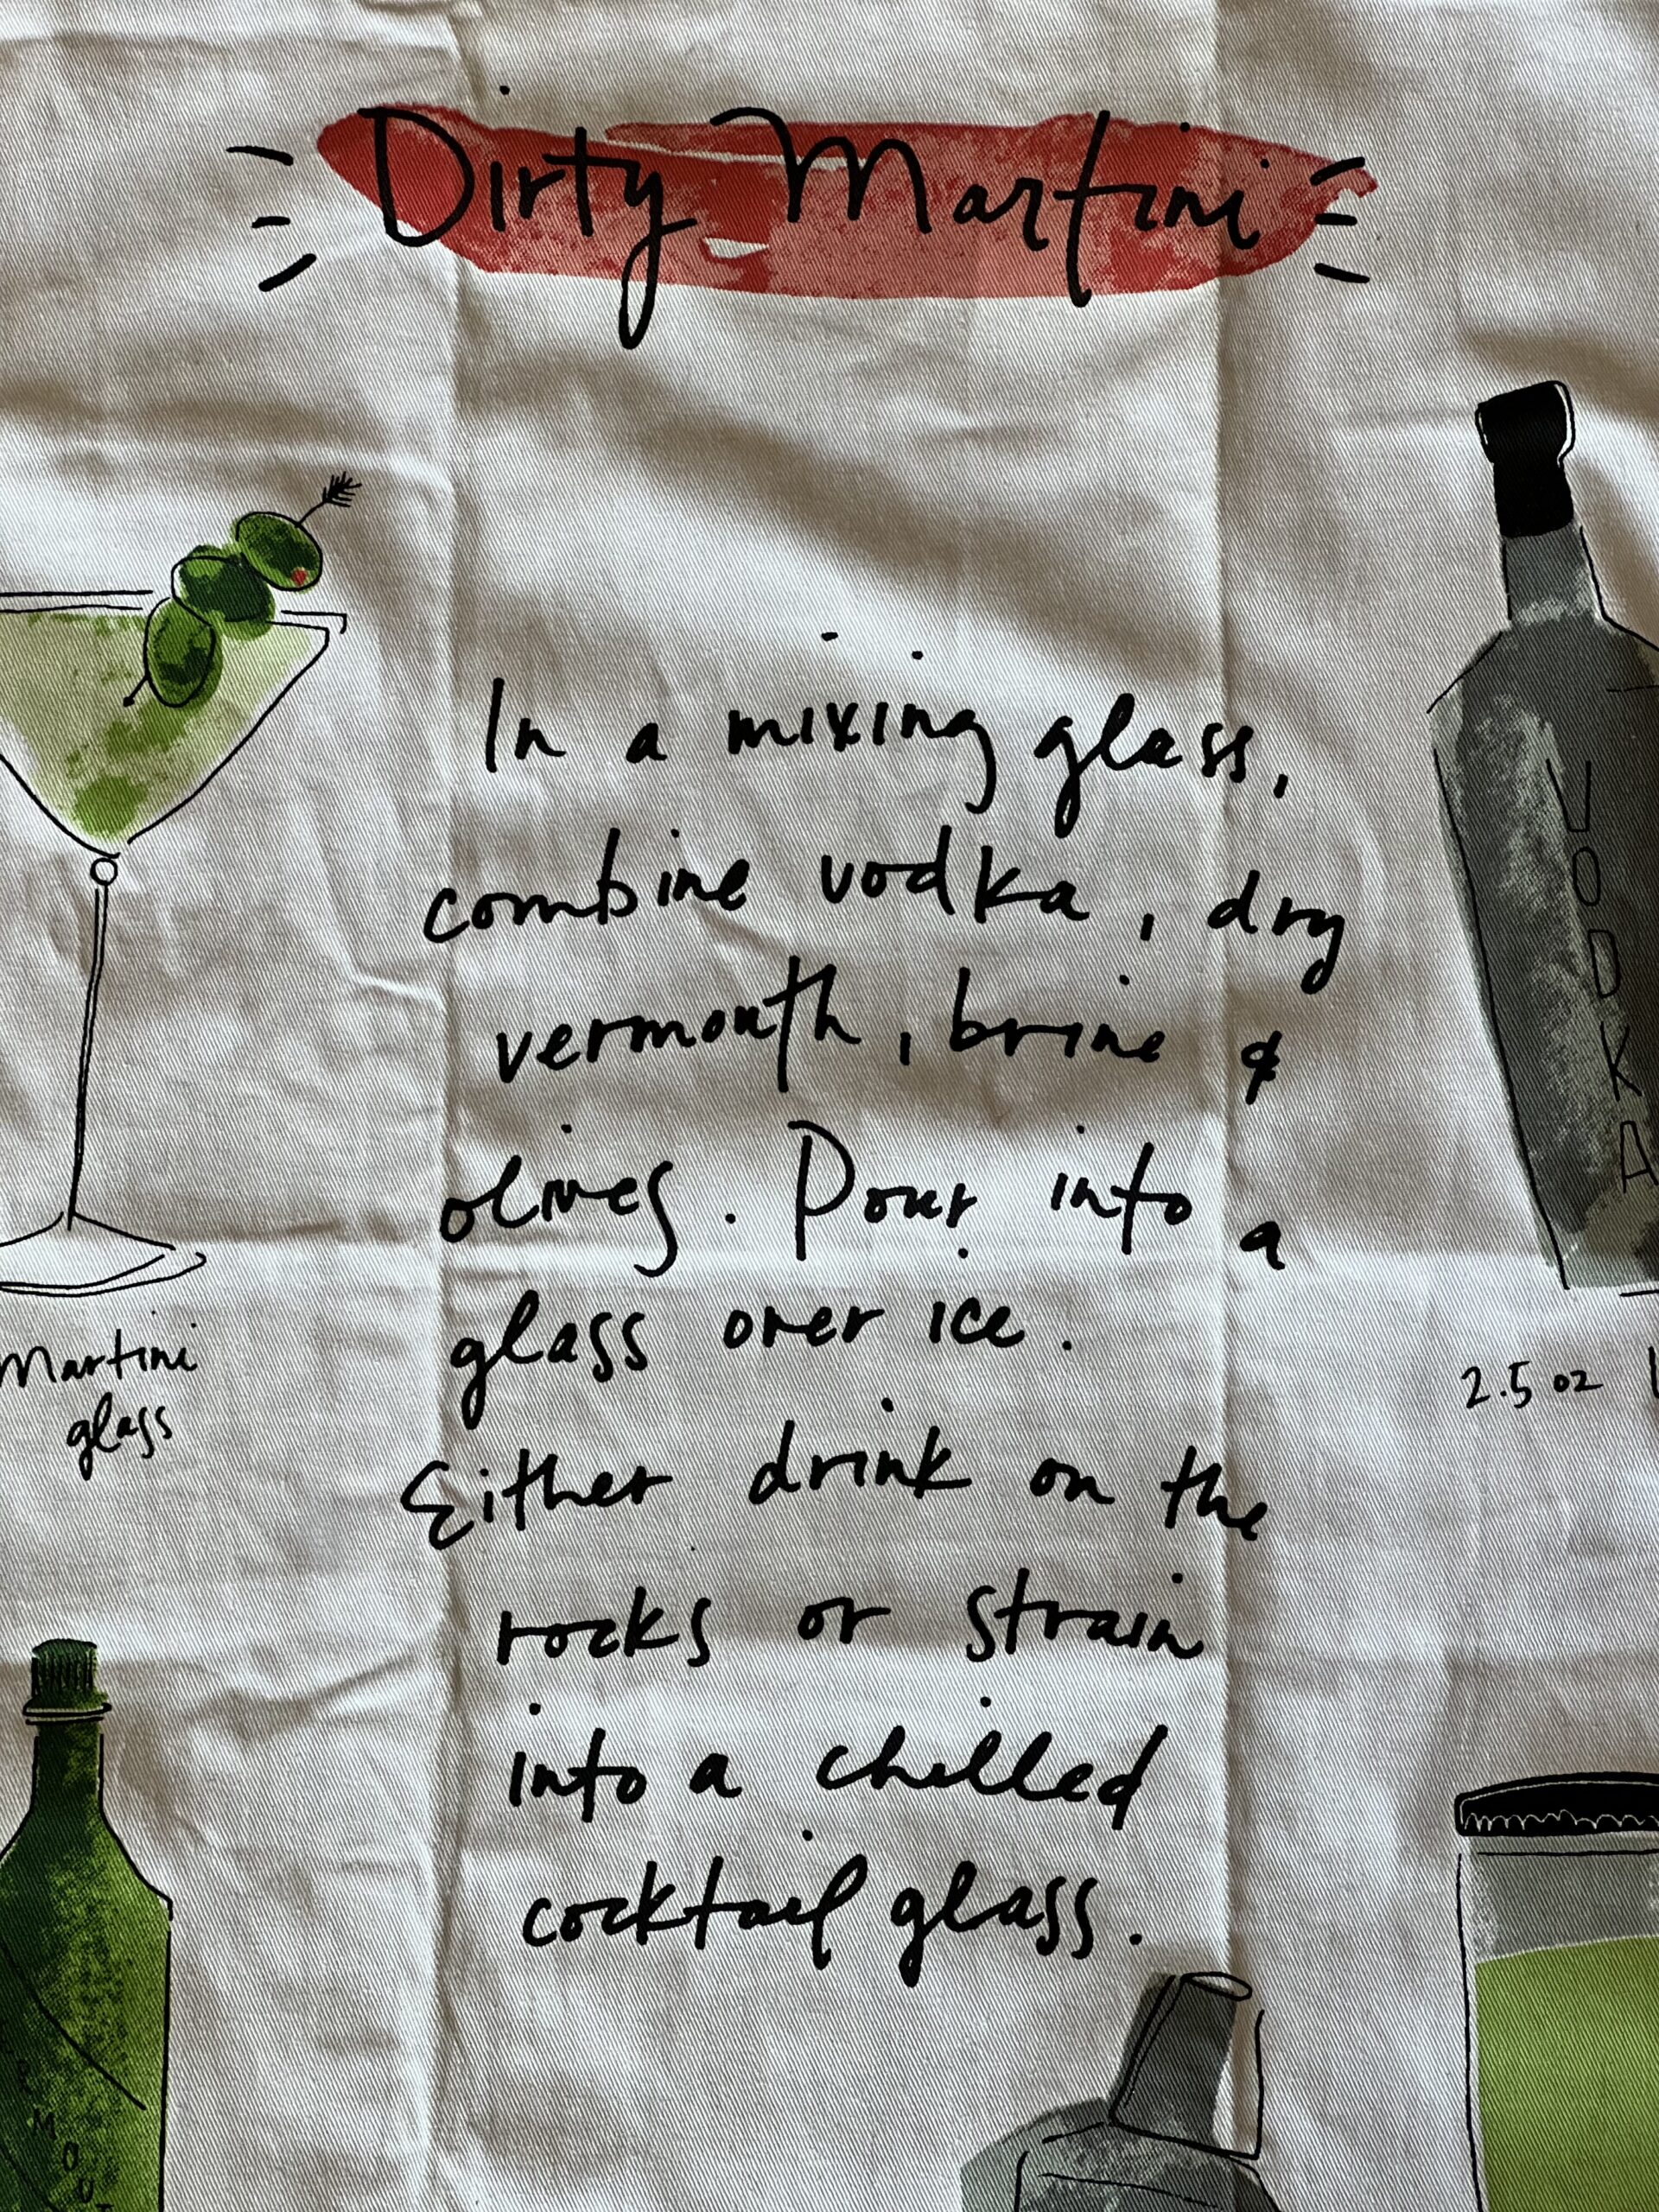 Dirty Martini
In a mixing glass,
combine vodka, dry
vermouth, brine &
olives. Pour into a
glass over ice.
Either drink on the
rocks or strain
into a chilled
cocktail glass.
Martini
glass
VODKA
2.5 oz